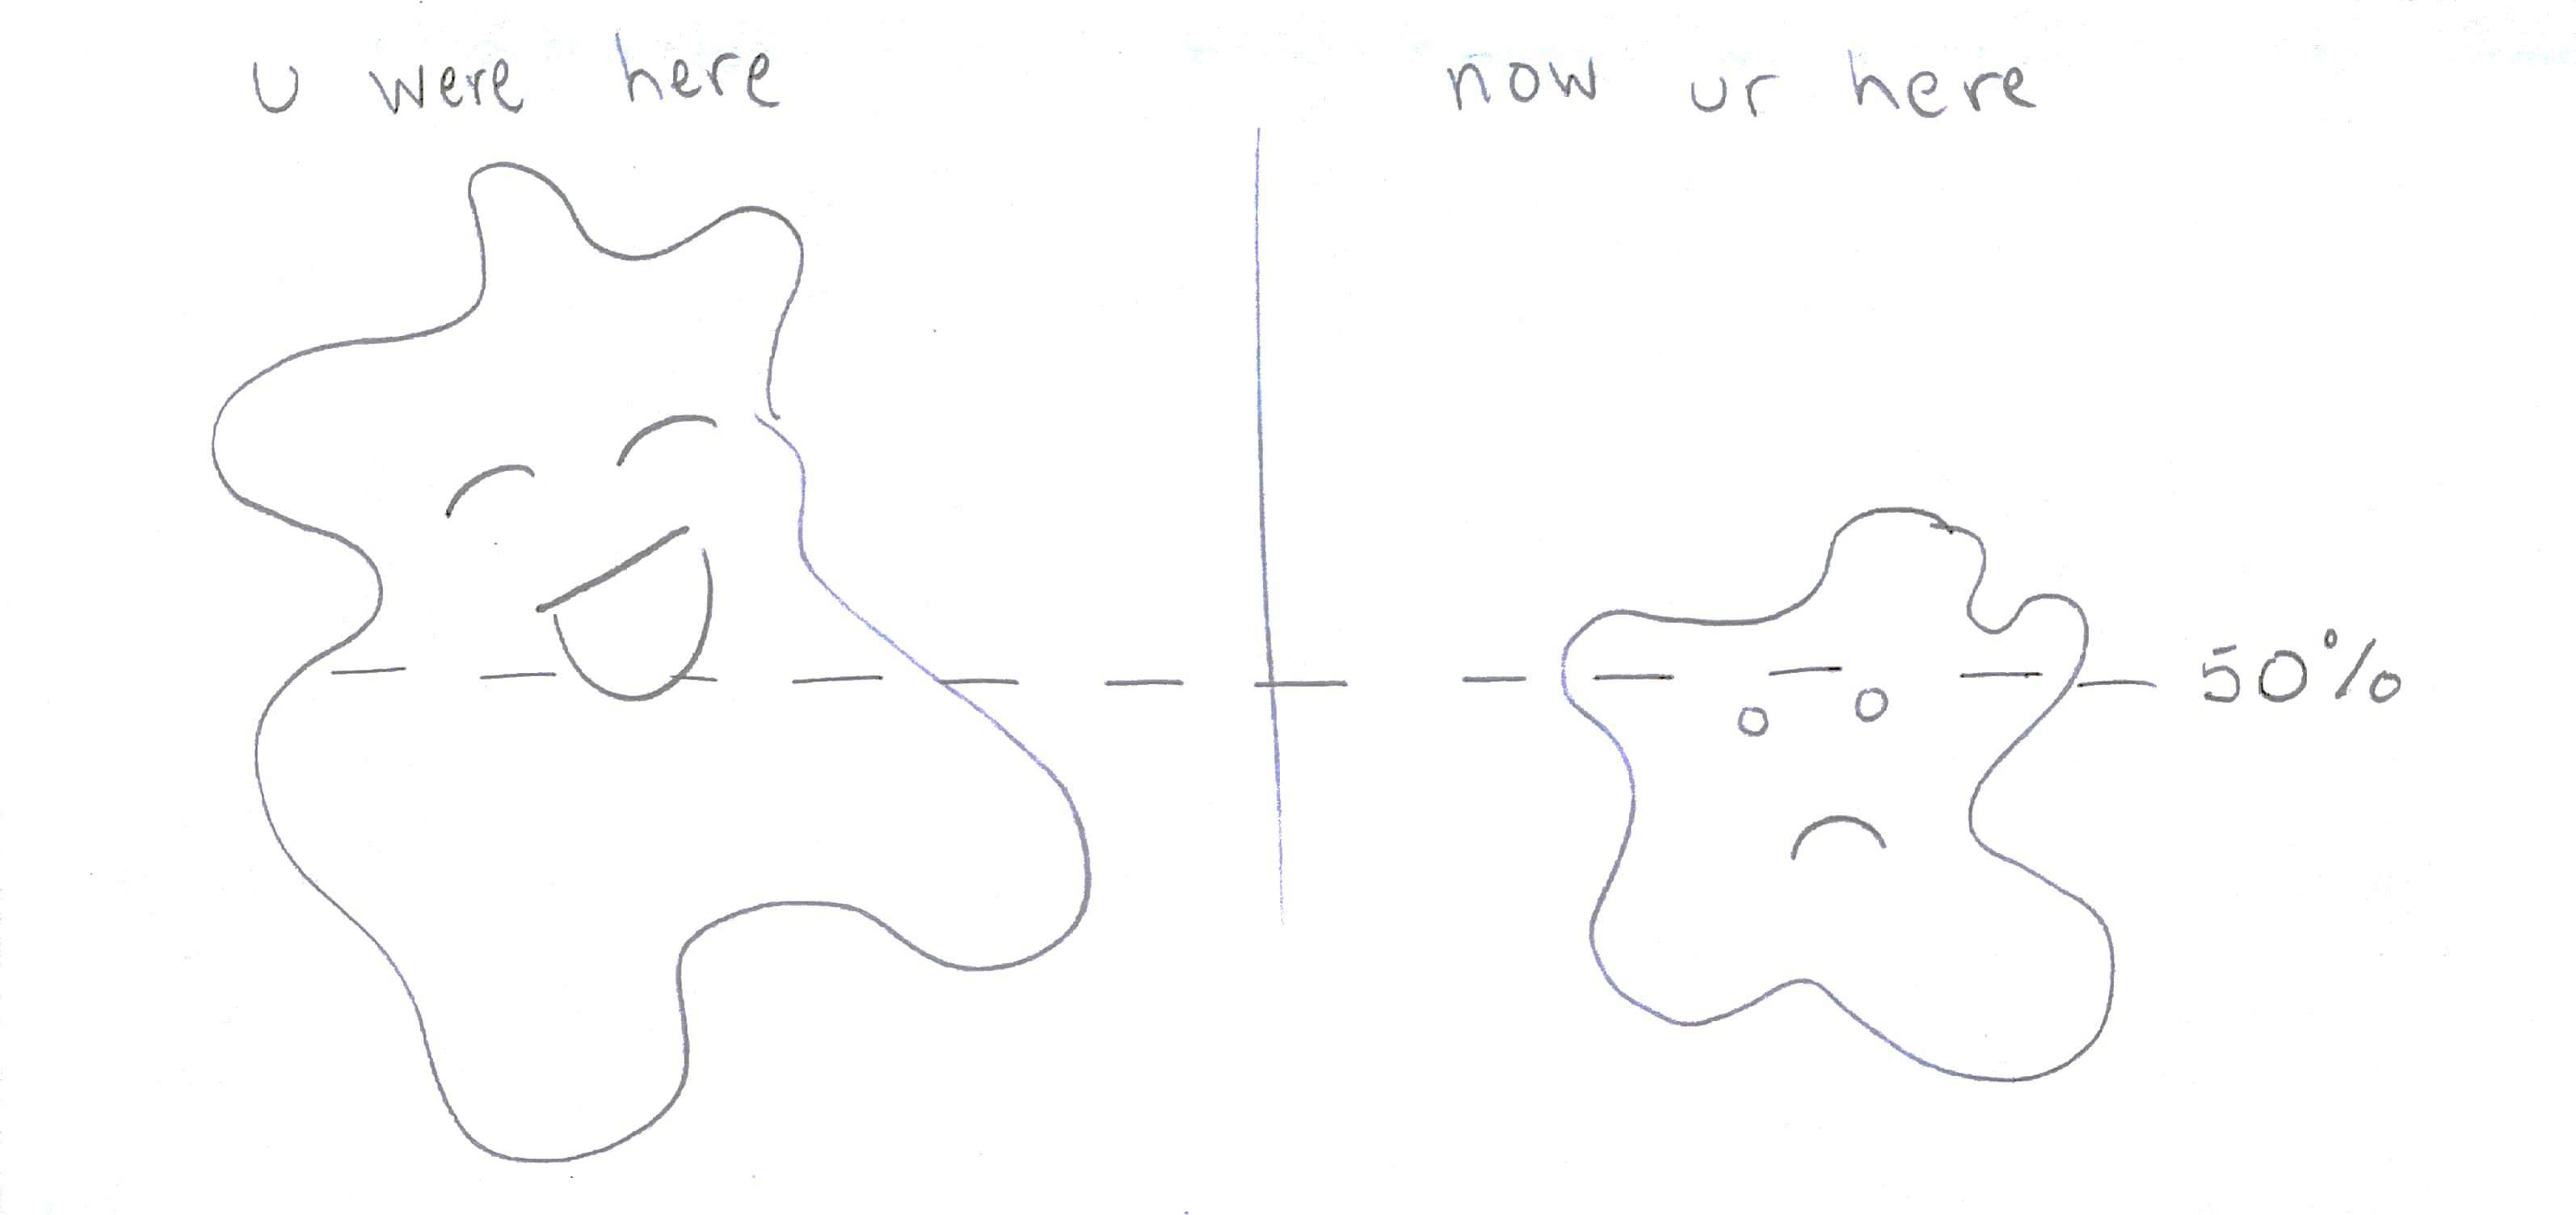 u were here
now ur here
50%